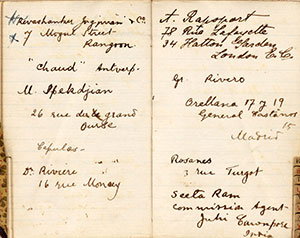 Revashanker Jagjivan & Co.
7 Mogul Street
Rangoon
"Chaud" Antwerp.
M. Ipekdjian
26 rue de la grand
Ourse
Dr. Riviere
16 rue Monsey
A. Rapoport
78 Rue Lafayette
34 Hatton Garden
London E.C.
Gr Rivero
Orellana 17 y 19
General Castaños
15
Madrid
Rosanes
3 rue Turgot
Seeta Ram
Commission Agent
Juhi Cawnpore
India